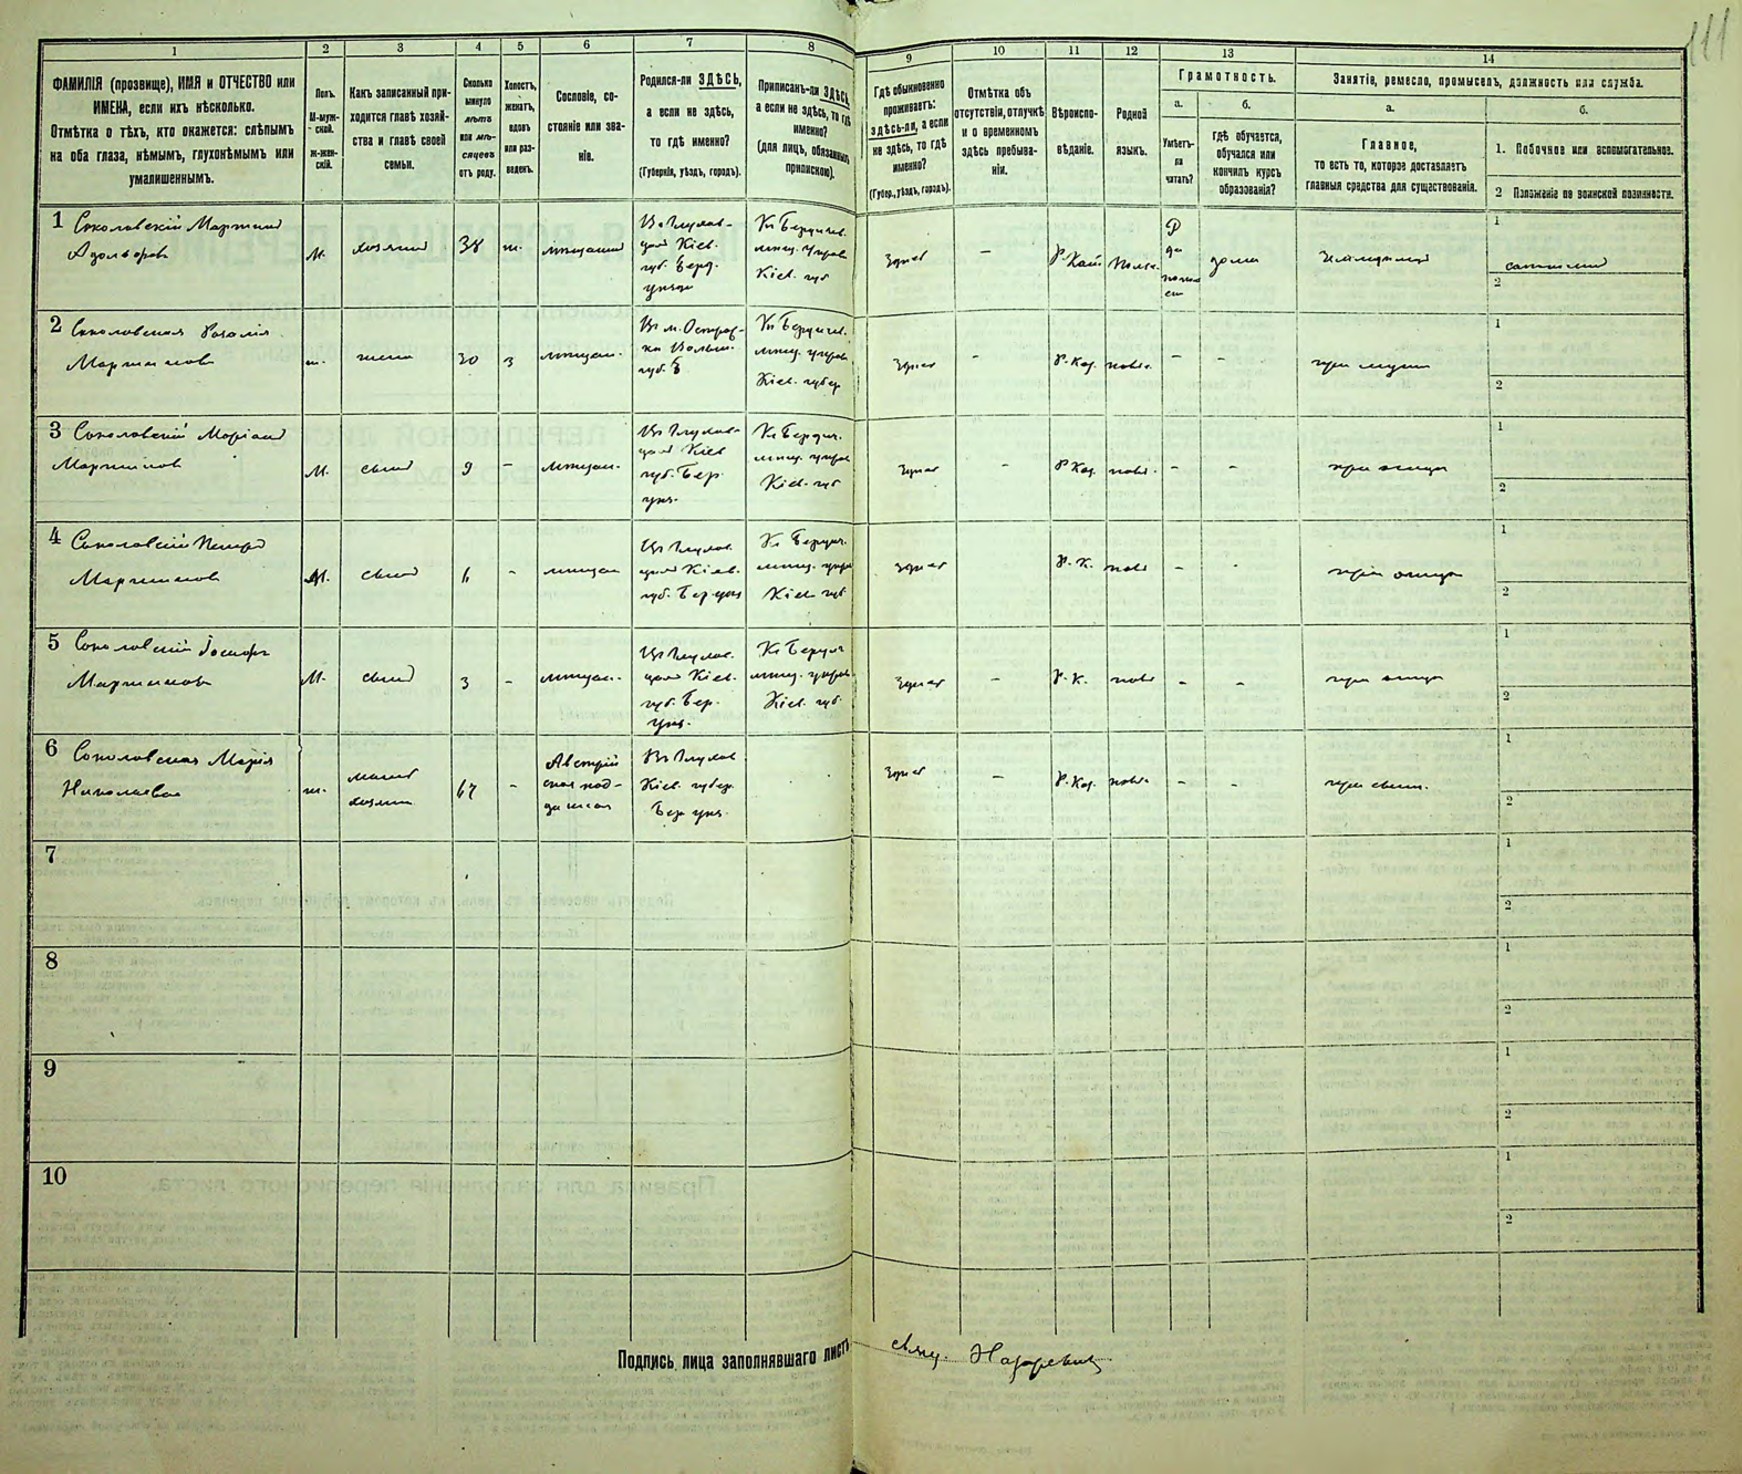 111
1 2 3 4 5 6 7 8 9 10 11 12 13 14
ФАМИЛІЯ (прозвище), ИМЯ и ОТЧЕСТВО или
ИМЕНА, если ихъ нѣсколько.
Отмѣтка о тѣхъ, кто окажется: слѣпымъ
на оба глаза, нѣмымъ, глухонѣмымъ или
умалишеннымъ.
Полъ.
М-муж-
ской.
ж-жен-
скій.
Какъ записанный при-
ходится главѣ хозяй-
ства и главѣ своей
семьи.
Сколько
минуло
лѣтъ
или мѣ-
сяцевъ
отъ роду.
Холостъ,
женатъ,
вдовъ
или раз-
веденъ.
Сословіе, со-
стояніе или зва-
ніе.
Родился-ли ЗДѢСЬ,
а если не здѣсь,
то гдѣ именно?
(Губернія, уѣздъ, городъ).
Приписанъ-ли ЗДѢСЬ,
а если не здѣсь, то гдѣ
именно?
(для лицъ, обязанныхъ
припискою).
Гдѣ обыкновенно
проживаетъ:
здѣсь-ли, а если
не здѣсь, то гдѣ
именно?
(Губер., уѣздъ, городъ).
Отмѣтка объ
отсутствіи, отлучкѣ
и о временномъ
здѣсь пребыва-
ніи.
Вѣроиспо-
вѣданіе.
Родной
языкъ.
Грамотность.
а.
Умѣетъ-
ли
читать?
б.
гдѣ обучается,
обучался или
кончилъ курсъ
образованія?
Занятіе, ремесло, промыселъ, должность или служба.
а.
Главное,
то есть то, которое доставляетъ
главныя средства для существованія.
б.
1. Побочное или вспомогательное.
2 Положеніе по воинской повинности.
1 Соколовскій Мартинъ
Адольфовъ
М. хозяинъ 38 ж. мѣщанинъ
Кіев.
губ. Берд.
уѣзда
Кіев. губ
здѣсь - Р. Кат. Польс.
да
дома
1
2
2 Соколовская Розалія
Мартинова
ж. жена 30 з мѣщан.
Въ м. Остроп-
ка Волын.
губ.
Къ Бердичев.
мѣщ. управ.
Кіев. губер
здѣсь - Р. Кат. польс. - - при мужѣ
1
2
3 Соколовскій Маріанъ
Мартиновъ
М. сынъ 9 - мѣщан.
Кіев
губ. Бер.
уѣз.
Къ Бердич.
мѣщ. управ
Кіев. губ
здѣсь - Р. Кат. польс. - - при отцѣ
1
2
4 Соколовскій Петръ
Мартиновъ
М. сынъ 6 - мѣщан
Кіев.
губ. Бер. уѣз
Къ Бердич.
мѣщ. управ
Кіев. губ
здѣсь Р. К. поль - - при отцѣ
1
2
5 Соколовскій Іосифъ
Мартиновъ
М. сынъ 3 - мѣщан.
Кіев.
губ. Бер.
уѣз.
Къ Бердич
мѣщ. управ.
Кіев. губ.
здѣсь - Р. К. поль - - при отцѣ
1
2
6 Соколовская Марія
Николаевна
ж. мать
хозяина
67 -
Австрій
ская под-
данная
Кіев. губер.
Бер. уѣз.
здѣсь - Р. Кат. польс. - - при сынѣ.
1
2
7
1
2
8
1
2
9
1
2
10
1
2
Подпись лица заполнявшаго листъ